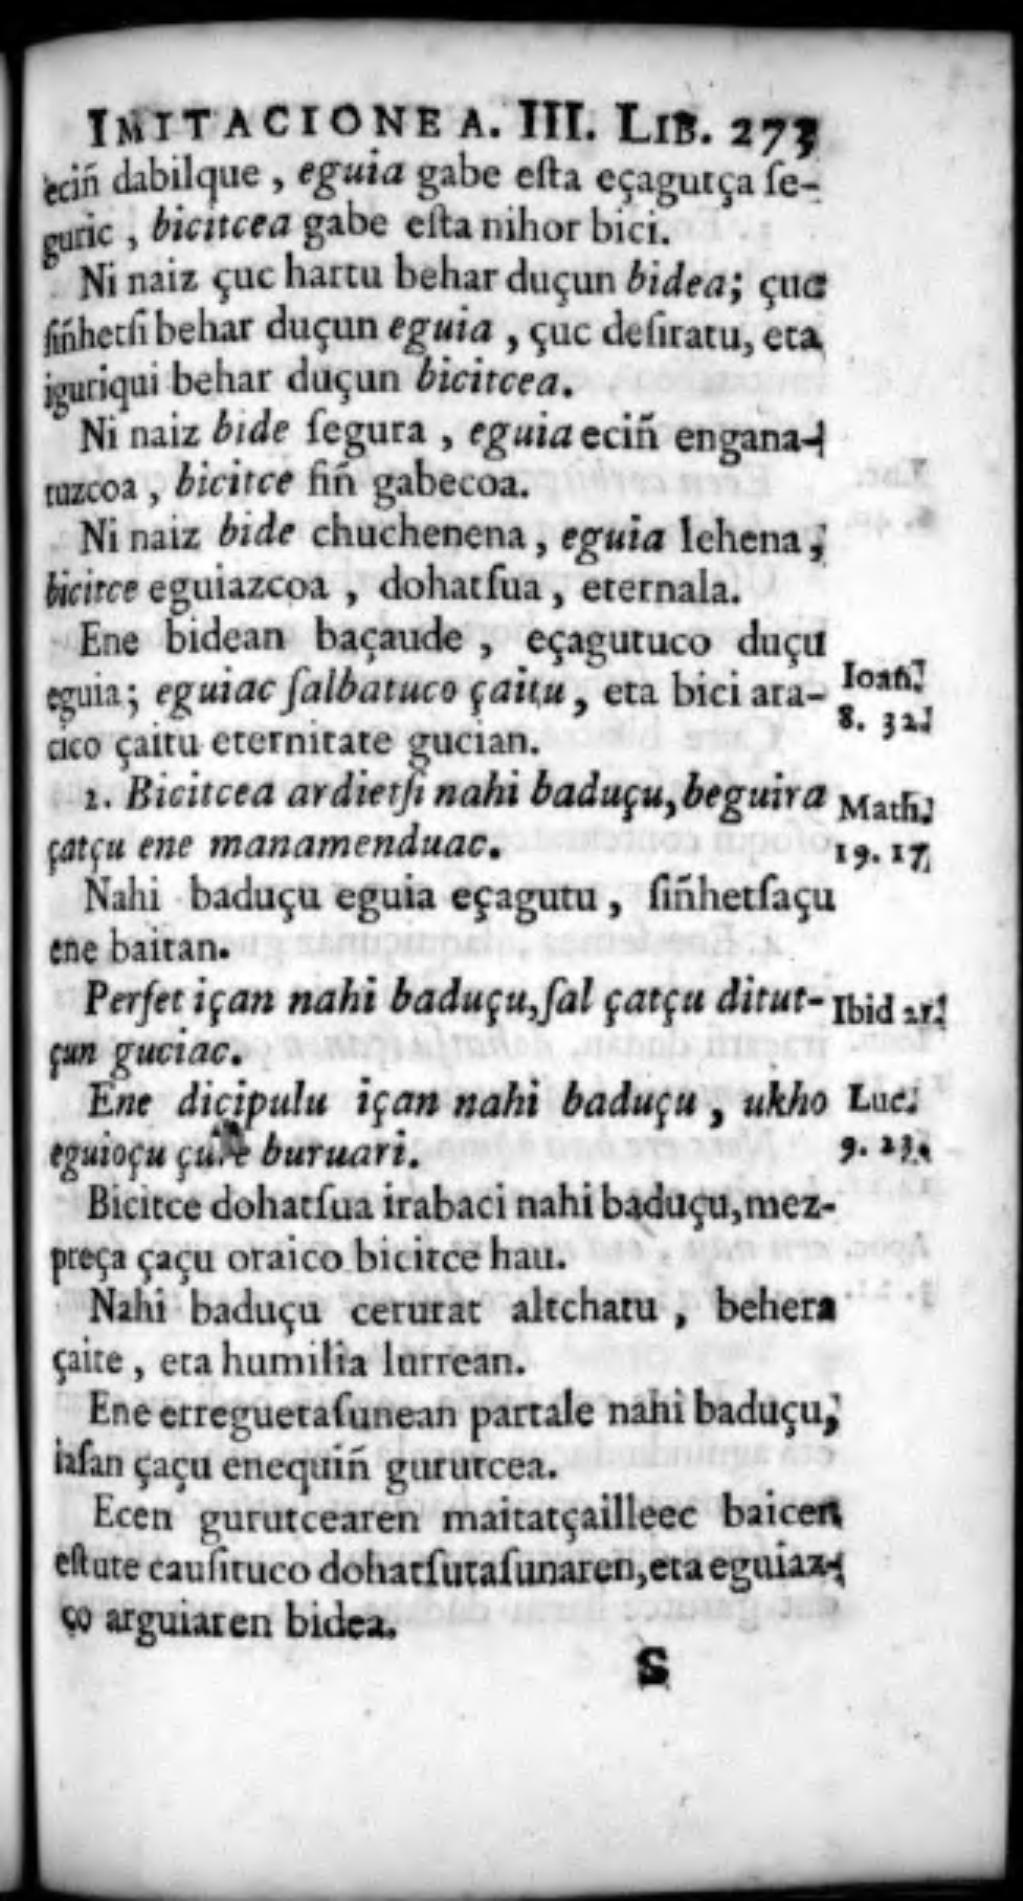 IMITACIONEA. III. LIB. 273
eciñ dabilque, eguia gabe eſta eçagutça ſe-
guric, bicitcea gabe eſta nihor bici.
Ni naiz çuc hartu behar duçun bidea; çuc
ſiñhetſi behar duçun eguia, çuc deſiratu, eta
iguriqui behar duçun bicitcea.
Ni naiz bide ſegura, eguia eciñ engana-
tuzcoa, bicitce fiñ gabecoa.
Ni naiz bide chuchenena, eguia lehena,
bicitce eguiazcoa, dohatſua, eternala.
Ene bidean baçaude, eçagutuco duçu
eguia; eguiac ſalbatuco çaitu, eta bici ara-
cico çaitu eternitate gucian.
Ioan.
8. 32.
2. Bicitcea ardietſi nahi baduçu, beguira
çatçu ene manamenduac.
Math.
19. 17.
Nahi baduçu eguia eçagutu, ſiñhetſaçu
ene baitan.
Perfet içan nahi baduçu, ſal çatçu ditut-
çun guciac.
Ibid 21.
Ene dicipulu içan nahi baduçu, ukho
eguioçu çure buruari.
Luc.
9. 23.
Bicitce dohatſua irabaci nahi baduçu, mez-
preça çaçu oraico bicitce hau.
Nahi baduçu cerurat altchatu, behera
çaite, eta humilia lurrean.
Ene erreguetaſunean partale nahi baduçu,
iaſan çaçu enequiñ gurutcea.
Ecen gurutcearen maitatçailleec baicen
eſtute cauſituco dohatſutaſunaren, eta eguiaz-
co arguiaren bidea.
S